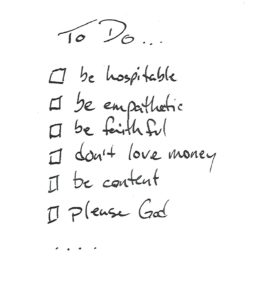 To Do...
be hospitable
be empathetic
be faithful
don't love money
be content
please God
....